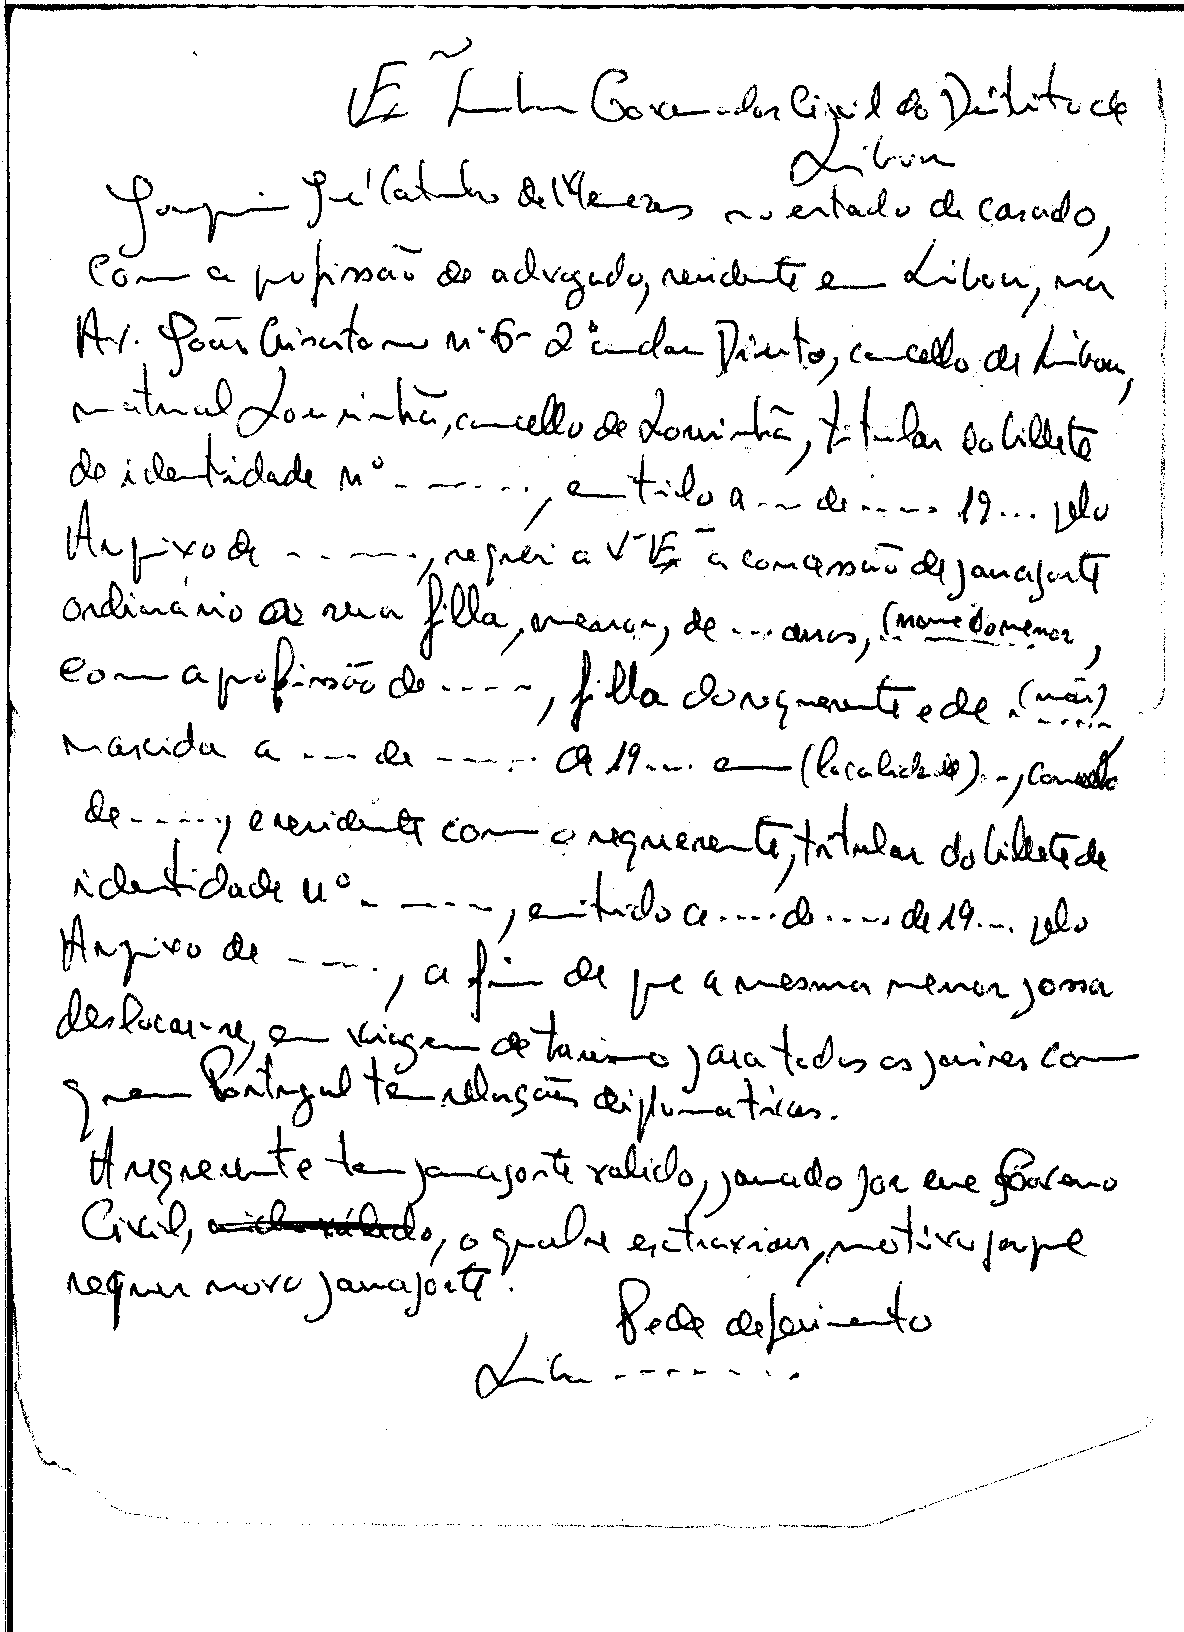 Exmº Senhor Governador Civil do Distrito de
Lisboa
Joaquim José Catanho de Menezes no estado de casado,
com a profissão de advogado, residente em Lisboa, na
Av. João Crisóstomo nº 6- 2º andar Direito, concelho de Lisboa,
natural Lourinhã, concelho de Lourinhã, titular do bilhete
de identidade nº - - - - - -, emitido a --- de ----- 19... pelo
Arquivo de - - - - - -, requer a V. Exª a concessão de passaporte
ordinário a sua filha, menor, de --- anos, (nome do menor),
com a profissão de - - - - -, filha do requerente e de (mãe)
nascida a --- de ----- de 19... em (localidade)..., concelho
de - - - - -, e residente com o requerente, titular do bilhete de
identidade nº - - - - - -, emitido a .... de ..... de 19... pelo
Arquivo de - - - - -, a fim de que a mesma menor possa
deslocar-se, em viagem de turismo para todos os países com
quem Portugal tem relações diplomáticas.
A requerente tem passaporte valido, passado por esse Governo
Civil, o qual se extraviou, motivo porque
requer novo passaporte.
Pede deferimento
Lisboa - - - - - - - .